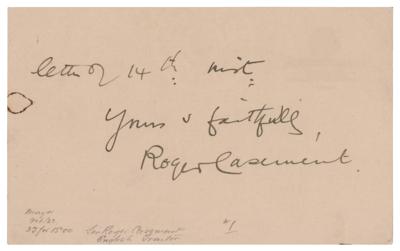 letter of 14th inst:
Yours v faithfully,
Roger Casement.
Sir Roger Casement
English Traitor
#1